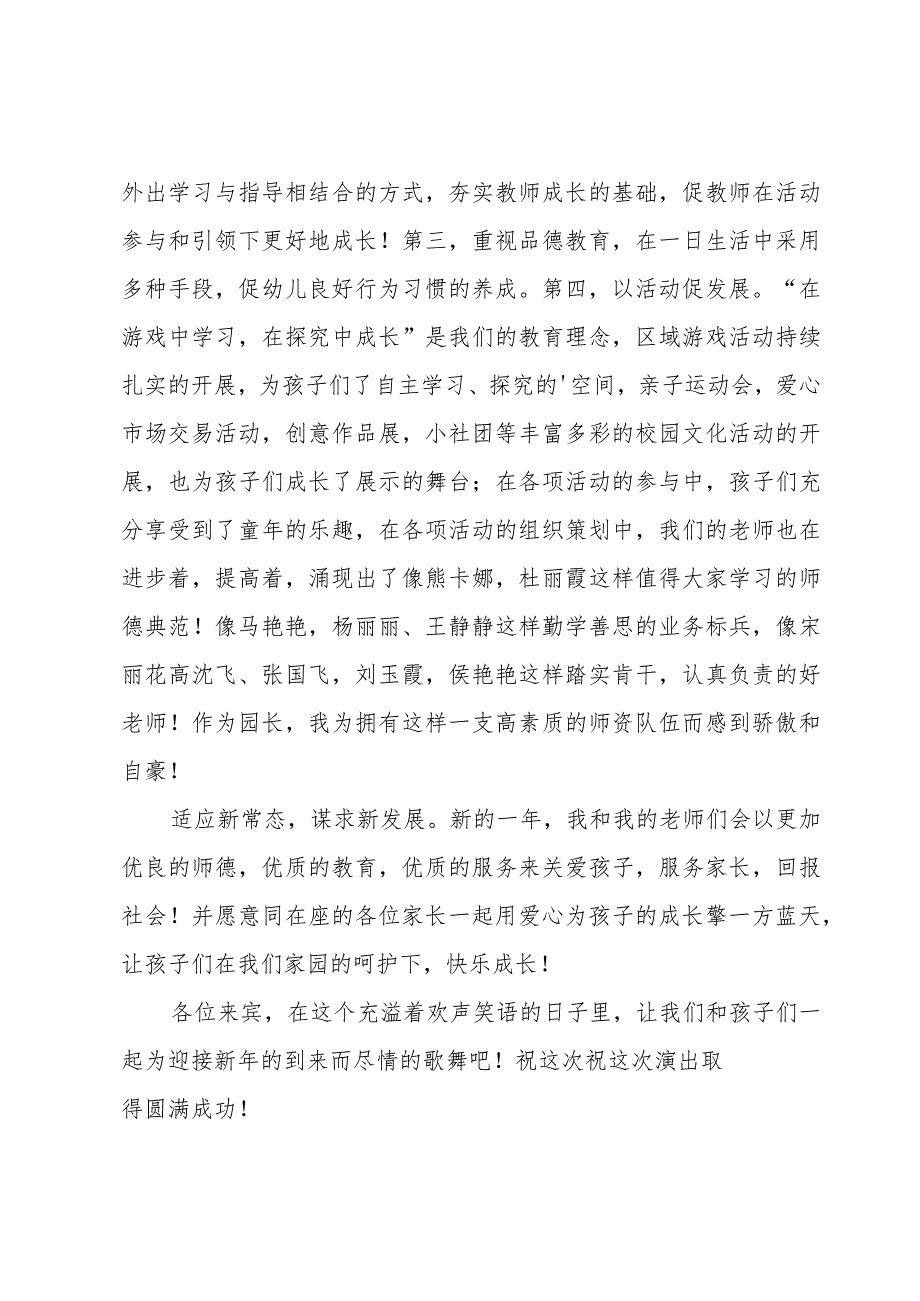 外出学习与指导相结合的方式，夯实教师成长的基础，促教师在活动
参与和引领下更好地成长！第三，重视品德教育，在一日生活中采用
多种手段，促幼儿良好行为习惯的养成。第四，以活动促发展。“在
游戏中学习，在探究中成长”是我们的教育理念，区域游戏活动持续
扎实的开展，为孩子们了自主学习、探究的'空间，亲子运动会，爱心
市场交易活动，创意作品展，小社团等丰富多彩的校园文化活动的开
展，也为孩子们成长了展示的舞台；在各项活动的参与中，孩子们充
分享受到了童年的乐趣，在各项活动的组织策划中，我们的老师也在
进步着，提高着，涌现出了像熊卡娜，杜丽霞这样值得大家学习的师
德典范！像马艳艳，杨丽丽、王静静这样勤学善思的业务标兵，像宋
丽花高沈飞、张国飞，刘玉霞，侯艳艳这样踏实肯干，认真负责的好
老师！作为园长，我为拥有这样一支高素质的师资队伍而感到骄傲和
自豪！
适应新常态，谋求新发展。新的一年，我和我的老师们会以更加
优良的师德，优质的教育，优质的服务来关爱孩子，服务家长，回报
社会！并愿意同在座的各位家长一起用爱心为孩子的成长擎一方蓝天，
让孩子们在我们家园的呵护下，快乐成长！
各位来宾，在这个充溢着欢声笑语的日子里，让我们和孩子们一
起为迎接新年的到来而尽情的歌舞吧！祝这次祝这次演出取
得圆满成功！